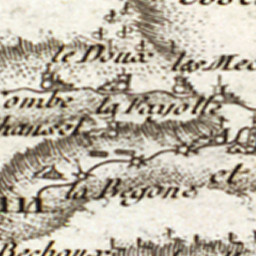 le Doux
las Mec
ombe
la Fayolle
hansel
la Begone
et
Bechaux